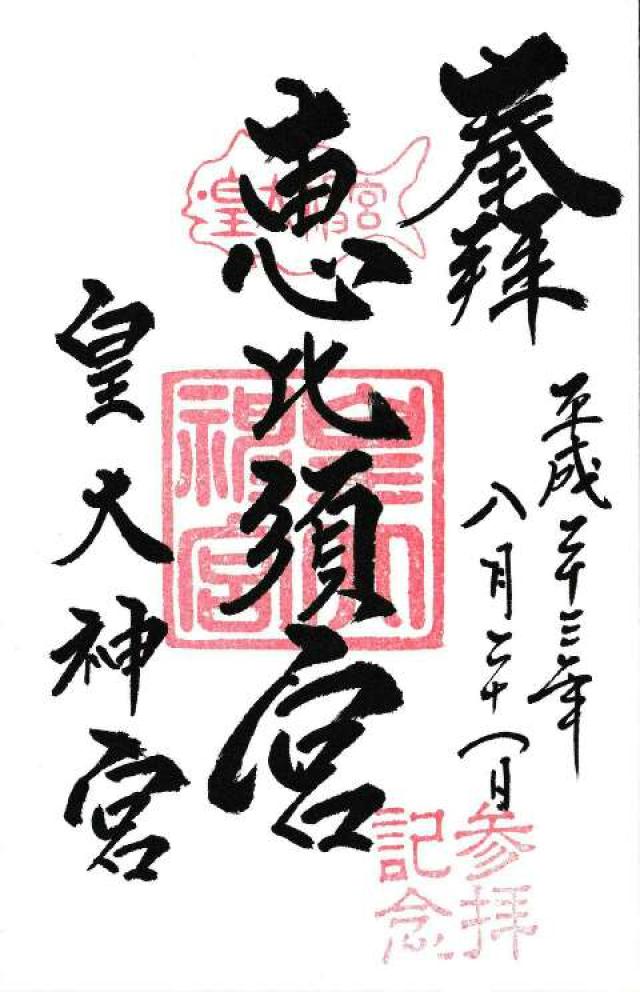 奉拝
平成二十三年
八月二十八日
恵比須宮
皇大神宮
皇大神宮
皇大神宮
参拝
記念